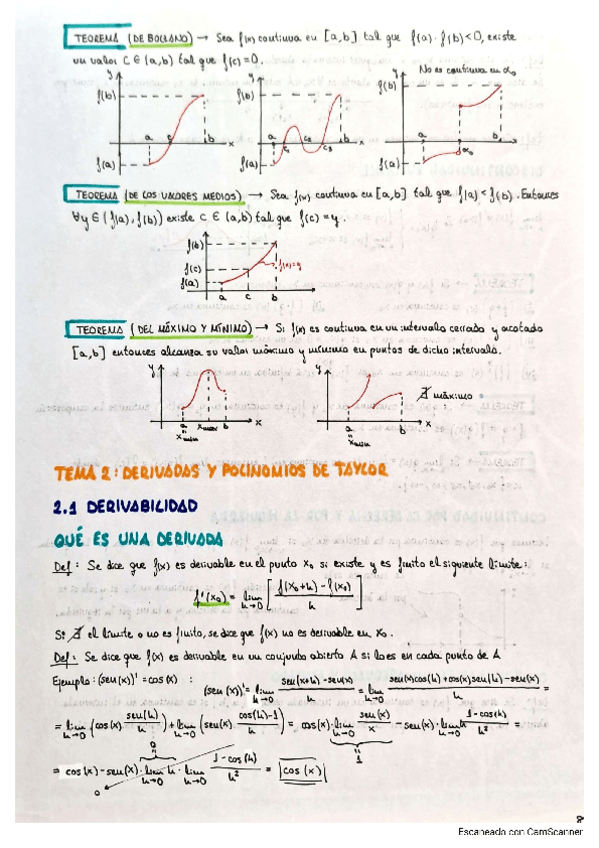 TEOREMA (DE BOLZANO) → Sea f(x) continua en [a,b] tal que f(a)·f(b)<0, existe
un valor C ∈ (a,b) tal que f(c)=0.
No es continua en x₀
y f(b) f(a) a c b x
y f(b) f(a) a c₁ c₂ c₃ b x
y f(b) f(a) a x₀ b x
TEOREMA (DE LOS VALORES MEDIOS) → Sea f(x) continua en [a,b] tal que f(a) < f(b). Entonces
∀y ∈ (f(a), f(b)) existe C ∈ (a,b) tal que f(c) = y.
f(b)
f(c) f(x)=y
f(a)
a c b x
TEOREMA (DEL MÁXIMO Y MÍNIMO) → Si f(x) es continua en un intervalo cerrado y acotado
[a,b] entonces alcanza su valor máximo y mínimo en puntos de dicho intervalo.
y a = xmin xmax b x
y a = xmin b x ∄ máximo
TEMA 2: DERIVADAS Y POLINOMIOS DE TAYLOR
2.1 DERIVABILIDAD
QUÉ ES UNA DERIVADA
Def: Se dice que f(x) es derivable en el punto x₀ si existe y es finito el siguiente límite:
f'(x₀) = lim h→0 [ f(x₀+h) - f(x₀) / h ]
Si ∄ el límite o no es finito, se dice que f(x) no es derivable en x₀.
Def: Se dice que f(x) es derivable en un conjunto abierto A si lo es en cada punto de A
Ejemplo: (sen(x))' = cos(x) :
(sen(x))' = lim h→0 sen(x+h) - sen(x) / h = lim h→0 sen(x)cos(h)+cos(x)sen(h)-sen(x) / h =
= lim h→0 (cos(x) sen(h)/h) + lim h→0 (sen(x) cos(h)-1 / h) = cos(x)·lim h→0 sen(x)/x - sen(x)·lim h→0 h 1-cos(h)/h² =
0 = 1
= cos(x) - sen(x)·lim h→0 h · lim h→0 1-cos(h)/h² = cos(x)
0
8
Escaneado con CamScanner